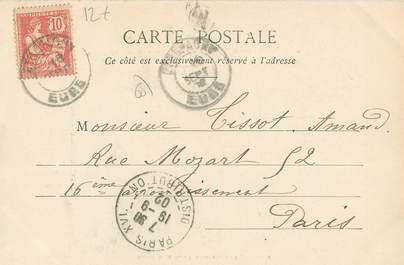 12+
10
EURE
CARTE POSTALE
Ce côté est exclusivement réservé à l'adresse
EURE
Monsieur Tissot Amand.
Rue Mozart 52
16ème arrondissement
Paris
PARIS XVI
DISTRIBUTION
7 30
18 -9
02